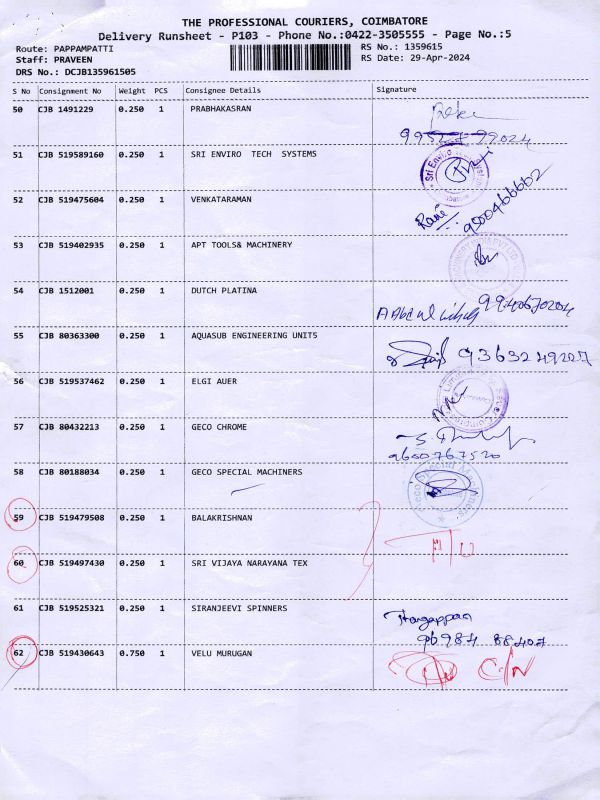 THE PROFESSIONAL COURIERS, COIMBATORE
Delivery Runsheet - P103 - Phone No.:0422-3505555 - Page No.:5
Route: PAPPAMPATTI
Staff: PRAVEEN
DRS No.: DCJB135961505
RS No.: 1359615
RS Date: 29-Apr-2024
S No Consignment No Weight PCS Consignee Details Signature
50 CJB 1491229 0.250 1 PRABHAKASRAN
51 CJB 519589160 0.250 1 SRI ENVIRO TECH SYSTEMS
Sri Enviro
52 CJB 519475604 0.250 1 VENKATARAMAN
Rani
53 CJB 519402935 0.250 1 APT TOOLS& MACHINERY
54 CJB 1512001 0.250 1 DUTCH PLATINA
55 CJB 80363300 0.250 1 AQUASUB ENGINEERING UNIT5
9363249227
56 CJB 519537462 0.250 1 ELGI AUER
57 CJB 80432213 0.250 1 GECO CHROME
9600767520
58 CJB 80188034 0.250 1 GECO SPECIAL MACHINERS
Geco Special Machiners
59 CJB 519479508 0.250 1 BALAKRISHNAN
60 CJB 519497430 0.250 1 SRI VIJAYA NARAYANA TEX
61 CJB 519525321 0.250 1 SIRANJEEVI SPINNERS
Thangappan
96984 88407
62 CJB 519430643 0.750 1 VELU MURUGAN
C/N